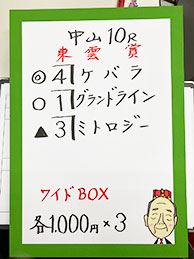 中山10R
東雲賞
◎4ケバラ
○1グランドライン
▲3ミトロジー
ワイドBOX
各1.000円×3